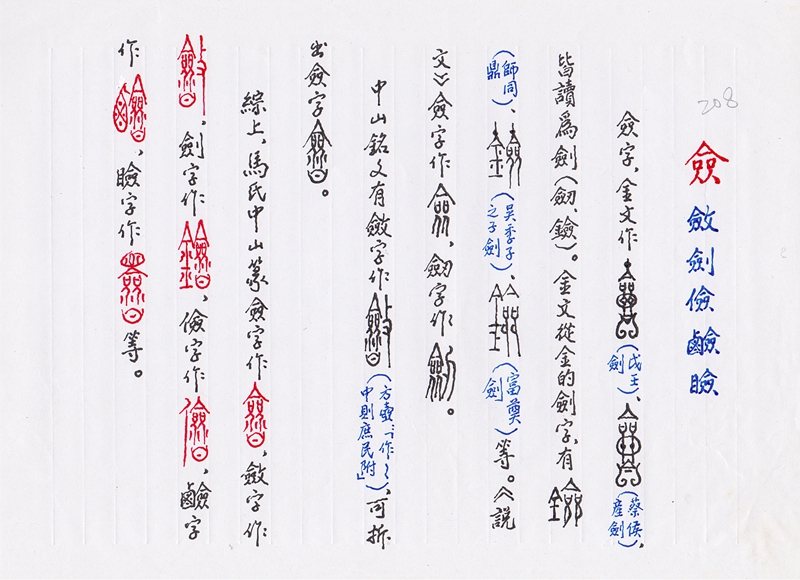 208
僉 斂 劍 儉 鹼 瞼
僉字,金文作(戉王劍)、(蔡侯産劍),
皆讀爲劍(劒、鐱)。金文從金的劍字,有
(師同鼎)、(吴季子之子劍)、(富奠劍)等。《説
文》僉字作,劒字作。
中山銘文有斂字作(方壺「作斂中則庶民附」),可拆
出僉字。
綜上,馬氏中山篆僉字作,斂字作
,劍字作,儉字作,鹼字
作,瞼字作等。